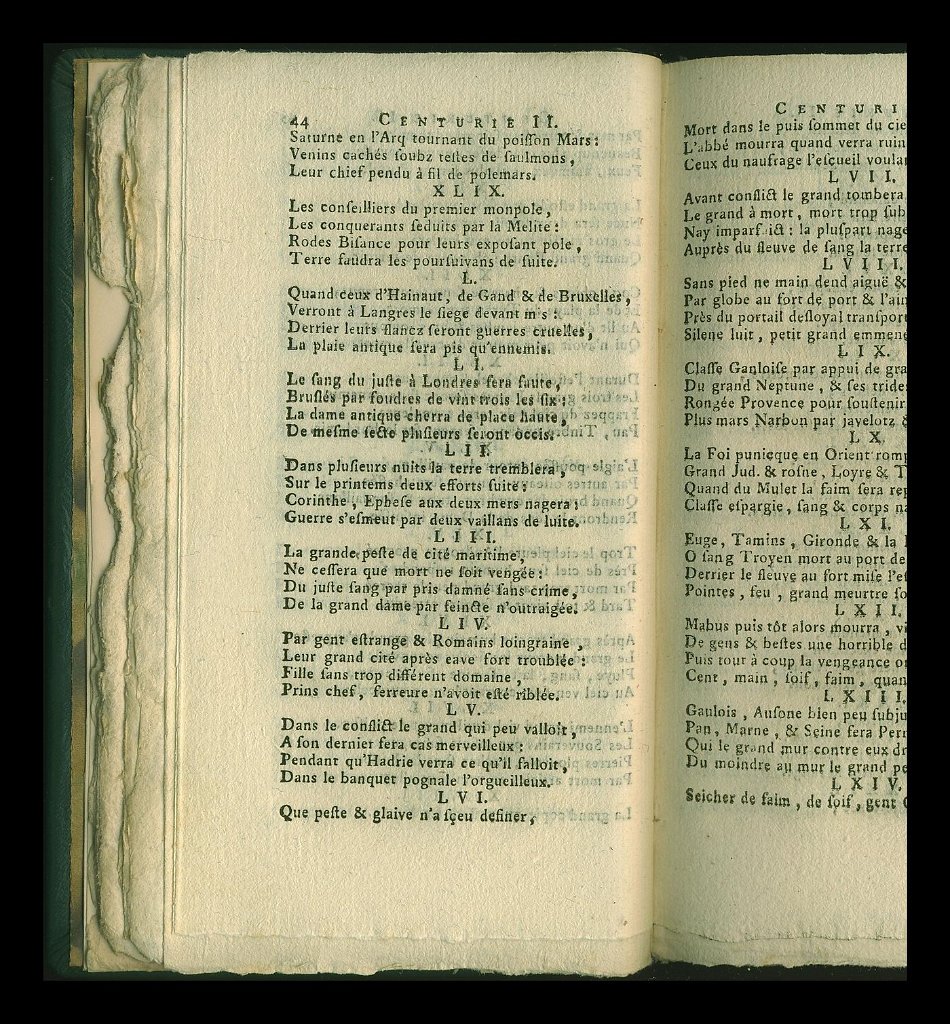 44 CENTURIE II.
Saturne en l'Arq tournant du poiſſon Mars:
Venins cachés ſoubz teſtes de ſaulmons,
Leur chief pendu à fil de polemars.
XLIX.
Les conſeilliers du premier monpole,
Les conquerants ſeduits par la Melite:
Rodes Biſance pour leurs expoſant pole,
Terre faudra les pourſuivans de fuite.
L.
Quand ceux d'Hainaut, de Gand & de Bruxelles,
Verront à Langres le ſiege devant m s:
Derrier leurs flancz ſeront guerres cruelles,
La plaie antique ſera pis qu'ennemis.
LI.
Le ſang du juſte à Londres fera faute,
Bruſlés par foudres de vint trois les ſix:
La dame antique cherra de place haute,
De meſme ſecte pluſieurs ſeront occis.
LII.
Dans pluſieurs nuits la terre tremblera,
Sur le printems deux efforts ſuite:
Corinthe, Epheſe aux deux mers nagera:
Guerre s'eſmeut par deux vaillans de luite.
LIII.
La grande peſte de cité maritime,
Ne ceſſera que mort ne ſoit vengée:
Du juſte ſang par pris damné ſans crime,
De la grand dame par feincte n'outraigée.
LIV.
Par gent eſtrange & Romains loingraine,
Leur grand cité après eave fort troublée:
Fille ſans trop différent domaine,
Prins chef, ferreure n'avoit eſté riblée.
LV.
Dans le conflict le grand qui peu valloit,
A ſon dernier fera cas merveilleux:
Pendant qu'Hadrie verra ce qu'il falloit,
Dans le banquet pognale l'orgueilleux.
LVI.
Que peſte & glaive n'a ſçeu definer,
CENTURI
Mort dans le puis ſommet du cie
L'abbé mourra quand verra ruin
Ceux du naufrage l'eſcueil voula
LVII.
Avant conflict le grand tombera
Le grand à mort, mort trop ſub
Nay imparfaict: la pluſpart nage
Auprès du fleuve de ſang la terre
LVIII.
Sans pied ne main dend aiguë &
Par globe au fort de port & l'ain
Près du portail deſloyal tranſport
Silene luit, petit grand emmene
LIX.
Claſſe Gauloiſe par appui de gra
Du grand Neptune, & ſes tride
Rongée Provence pour ſouſtenir
Plus mars Narbon par javelotz &
LX.
La Foi punicque en Orient romp
Grand Jud. & roſne, Loyre & T
Quand du Mulet la faim ſera rep
Claſſe eſpargie, ſang & corps na
LXI.
Euge, Tamins, Gironde & la
O ſang Troyen mort au port de
Derrier le fleuve au fort miſe l'eſ
Pointes, feu, grand meurtre ſo
LXII.
Mabus puis tôt alors mourra, vi
De gens & beſtes une horrible d
Puis tout à coup la vengeance o
Cent, main, ſoif, faim, quan
LXIII.
Gaulois, Auſone bien peu ſubju
Pan, Marne, & Seine fera Perr
Qui le grand mur contre eux dr
Du moindre au mur le grand pe
LXIV.
Seicher de faim, de ſoif, gent